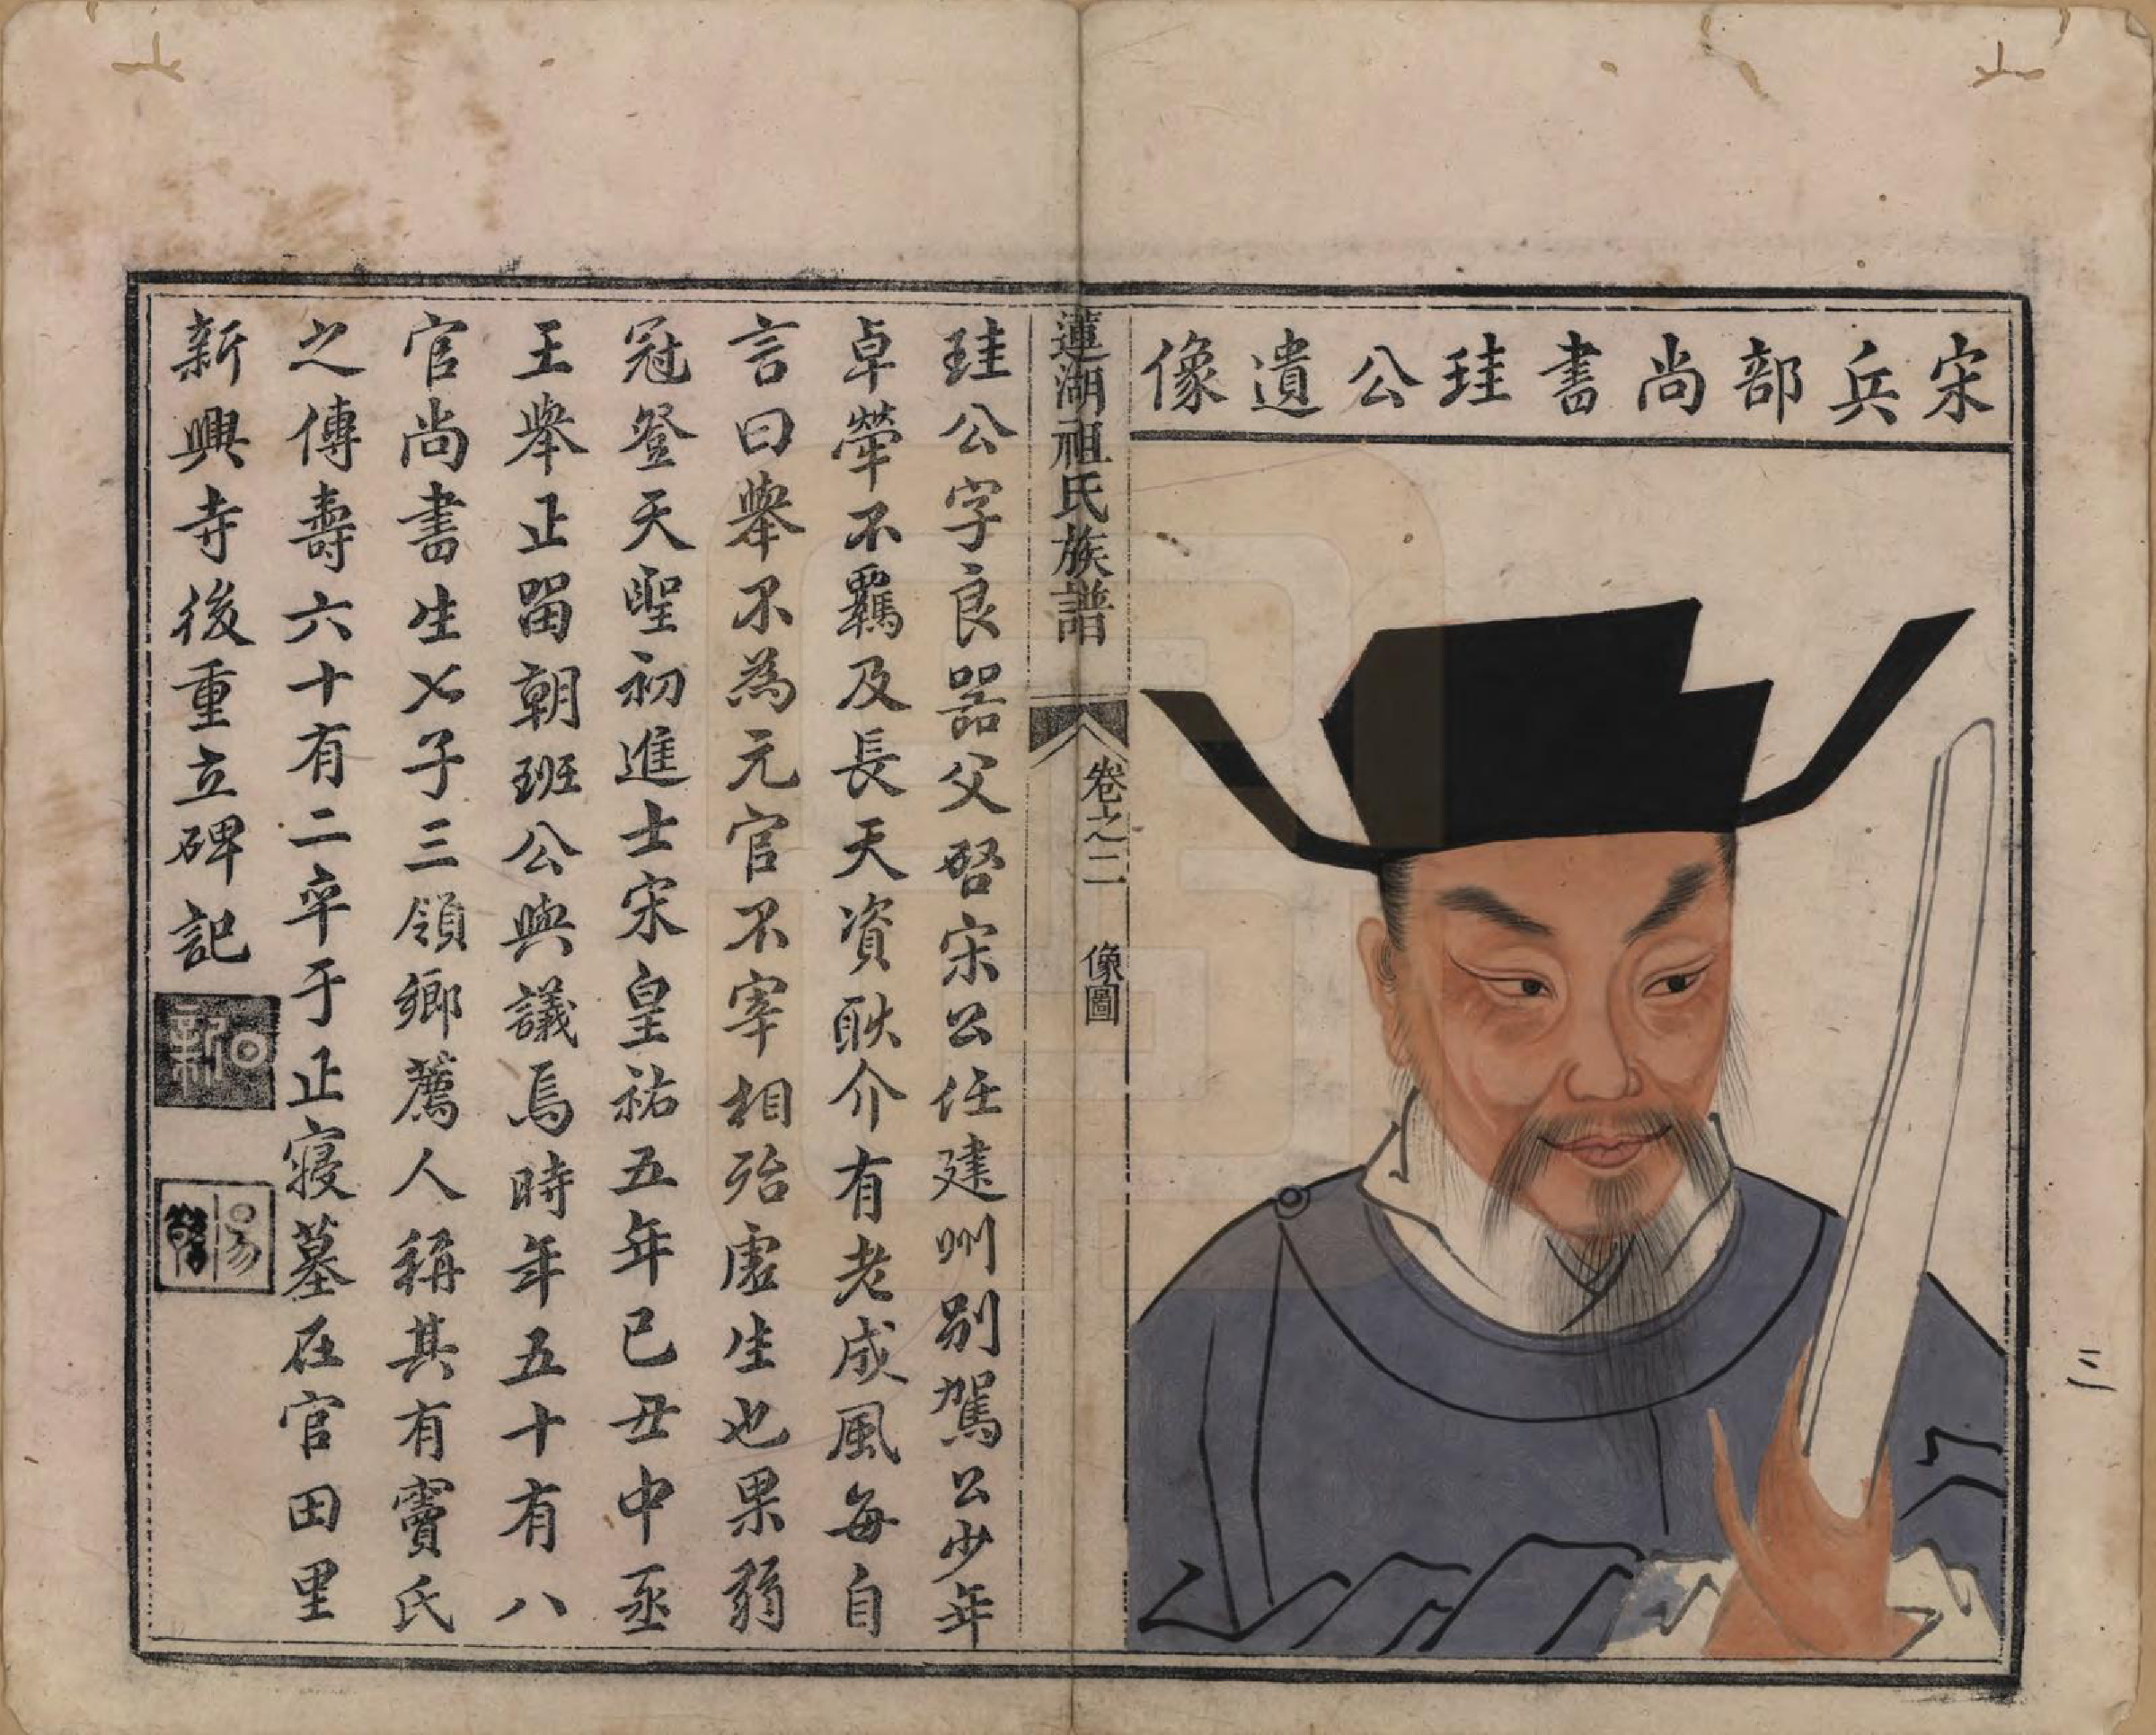 宋兵部尚書珪公遺像
蓮湖祖氏族譜 卷之二 像圖
珪公字良器父啓宋公任建州別駕公少年
卓犖不羈及長天資耿介有老成風每自
言曰舉不為元官不宰相殆虛生也果弱
冠登天聖初進士宋皇祐五年已丑中丞
王舉正留朝班公與議焉時年五十有八
官尚書生乂子三領鄉薦人稱其有竇氏
之傳壽六十有二卒于正寢墓在官田里
新興寺後重立碑記
三